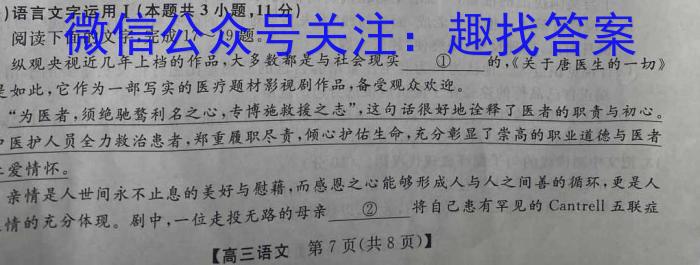 )语言文字运用Ⅰ(本题共3小题,11分)
阅读下面的文字,完成17~19题。
微信公众号关注：趣找答案
纵观央视近几年上档的作品,大多数都是与社会现实 ① 的,《关于唐医生的一切》
是如此,它作为一部写实的医疗题材影视剧作品,备受观众欢迎。
“为医者,须绝驰骛利名之心,专博施救援之志”,这句话很好地诠释了医者的职责与初心。
中医护人员全力救治患者,郑重履职尽责,倾心护佑生命,充分彰显了崇高的职业道德与医者
仁爱情怀。
亲情是人世间永不止息的美好与慰藉,而感恩之心能够形成人与人之间善的循环,更是人
情的充分体现。剧中,一位走投无路的母亲 ② 将自己患有罕见的 Cantrell 五联症
【高三语文 第7页(共8页)】